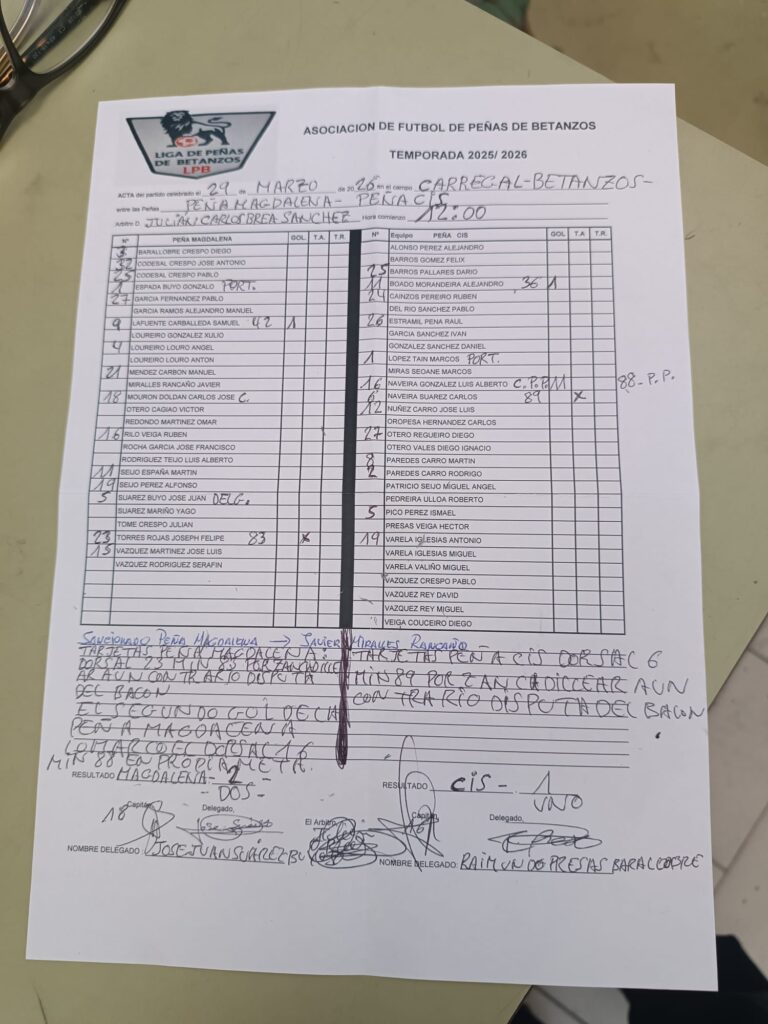 LIGA DE PEÑAS
DE BETANZOS
LPB
ASOCIACION DE FUTBOL DE PEÑAS DE BETANZOS
TEMPORADA 2025/ 2026
ACTA del partido celebrado el 29 de MARZO de 2026 en el campo CARREGAL-BETANZOS-
entre las Peñas PEÑA MAGDALENA- PEÑA CIS
Arbitro D. JULIÁN CARLOS BREA SANCHEZ Hora comienzo 12:00
Nº PEÑA MAGDALENA GOL. T.A. T.R.
3 BARALLOBRE CRESPO DIEGO
CODESAL CRESPO JOSE ANTONIO
25 CODESAL CRESPO PABLO
1 ESPADA BUYO GONZALO PORT.
27 GARCIA FERNANDEZ PABLO
GARCIA RAMOS ALEJANDRO MANUEL
9 LAFUENTE CARBALLEDA SAMUEL 42 1
LOUREIRO GONZALEZ XULIO
4 LOUREIRO LOURO ANGEL
LOUREIRO LOURO ANTON
21 MENDEZ CARBON MANUEL
MIRALLES RANCAÑO JAVIER
18 MOURON DOLDAN CARLOS JOSE C.
OTERO CAGIAO VICTOR
REDONDO MARTINEZ OMAR
16 RILO VEIGA RUBEN
ROCHA GARCIA JOSE FRANCISCO
RODRIGUEZ TEIJO LUIS ALBERTO
11 SEIJO ESPAÑA MARTIN
19 SEIJO PEREZ ALFONSO
5 SUAREZ BUYO JOSE JUAN DELG.
SUAREZ MARIÑO YAGO
TOME CRESPO JULIAN
23 TORRES ROJAS JOSEPH FELIPE 83 x
15 VAZQUEZ MARTINEZ JOSE LUIS
VAZQUEZ RODRIGUEZ SERAFIN
Nº Equipo PEÑA CIS GOL T.A T.R.
ALONSO PEREZ ALEJANDRO
BARROS GOMEZ FELIX
25 BARROS PALLARES DARIO
11 BOADO MORANDEIRA ALEJANDRO 36 1
24 CAINZOS PEREIRO RUBEN
DEL RIO SANCHEZ PABLO
26 ESTRAMIL PENA RAUL
GARCIA SANCHEZ IVAN
GONZALEZ SANCHEZ DANIEL
1 LOPEZ TAIN MARCOS PORT.
MIRAS SEOANE MARCOS
16 NAVEIRA GONZALEZ LUIS ALBERTO C. P.P. 1 88-P.P.
6 NAVEIRA SUAREZ CARLOS 89 x
12 NUÑEZ CARRO JOSE LUIS
OROPESA HERNANDEZ CARLOS
27 OTERO REGUEIRO DIEGO
OTERO VALES DIEGO IGNACIO
8 PAREDES CARRO MARTIN
2 PAREDES CARRO RODRIGO
PATRICIO SEIJO MIGUEL ANGEL
PEDREIRA ULLOA ROBERTO
5 PICO PEREZ ISMAEL
PRESAS VEIGA HECTOR
19 VARELA IGLESIAS ANTONIO
VARELA IGLESIAS MIGUEL
VARELA VALIÑO MIGUEL
VAZQUEZ CRESPO PABLO
VAZQUEZ REY DAVID
VAZQUEZ REY MIGUEL
VEIGA COUCEIRO DIEGO
SANCIONADO PEÑA MAGDALENA → JAVIER MIRALLES RANCAÑO
TARJETAS PEÑA MAGDALENA:
DORSAL 23 MIN 83 POR ZANCADILLE
AR A UN CONTRARIO DISPUTA
DEL BALON
EL SEGUNDO GOL DE LA
PEÑA MAGDALENA
LO MARCO EL DORSAL 16
MIN 88 EN PROPIA META.
TARJETAS PEÑA CIS DORSAL 6
MIN 89 POR ZANCADILLEAR A UN
CONTRARIO DISPUTA DEL BALON
RESULTADO MAGDALENA- 2
-DOS-
RESULTADO CIS - 1
UNO
18 Capitán, Delegado, El Arbitro, Capitán, 16 Delegado,
NOMBRE DELEGADO: JOSE JUAN SUÁREZ BU
NOMBRE DELEGADO: RAIMUNDO PRESAS BARALLOBRE